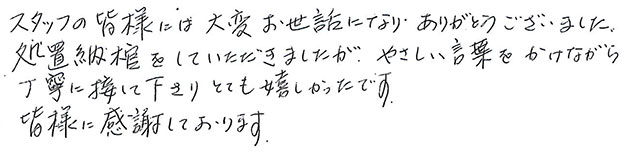 スタッフの皆様には大変お世話になり ありがとうございました。
処置納棺をしていただきましたが、やさしい言葉をかけながら
丁寧に接して下さりとても嬉しかったです。
皆様に感謝しております。